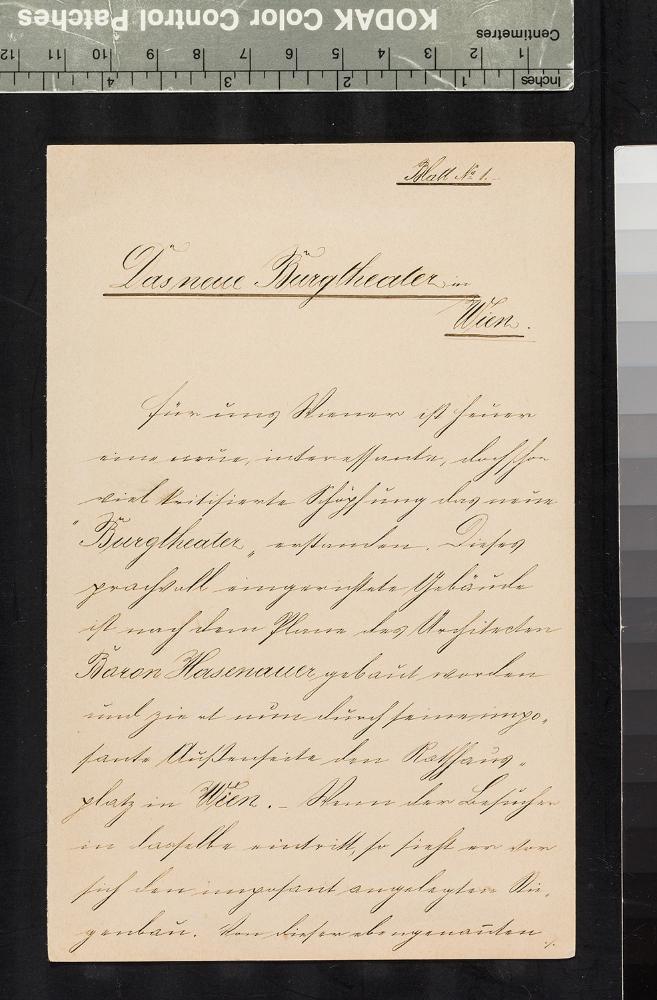 KODAK Color Control Patches
Centimetres
1 2 3 4 5 6 7 8 9 10 11 12
Inches 1 2 3 4
Blatt No 1.
Das neue Burgtheater in
Wien.
Für uns Wiener ist heuer
eine neue, interessante, doch schon
viel kritisierte Schöpfung das neue
"Burgtheater" erstanden. Dieses
prachvoll eingerichtete Gebäude
ist nach dem Plane des Architecten
Baron Hasenauer gebaut worden
und ziert nun durch seine impo-
sante Außenseite den Rathhaus-
platz in Wien. – Wenn der Besucher
in dasselbe eintritt, so sieht er vor
sich den imposant angelegten Stie-
genbau. Von dieser ebengenannten
./.